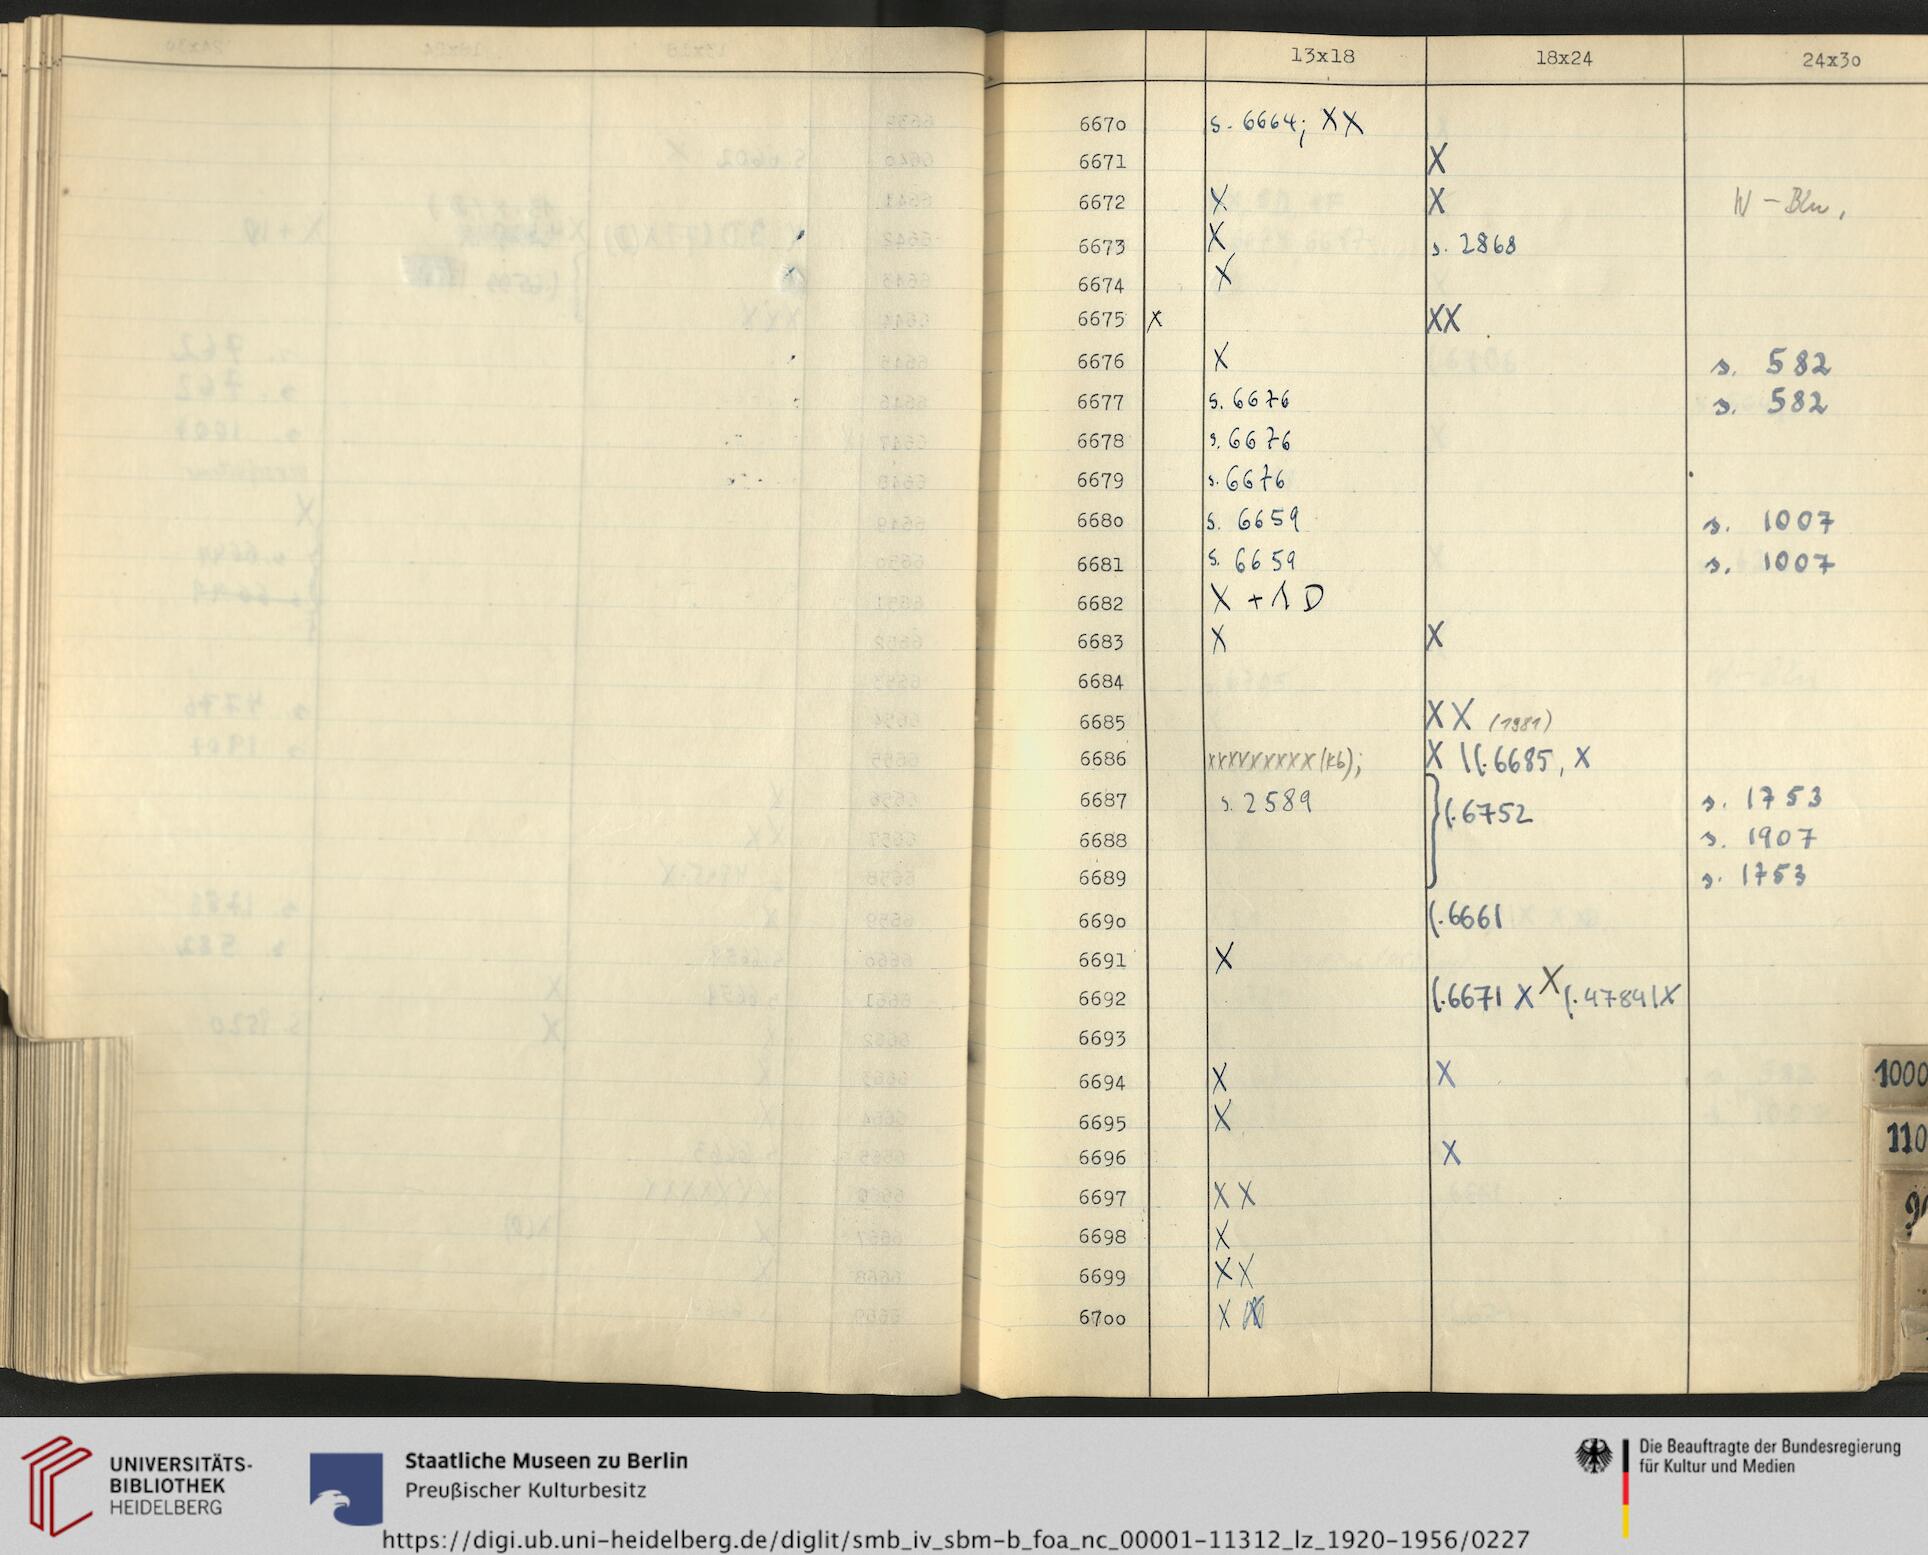 13x18 18x24 24x3o
667o s. 6664; XX
6671 X
6672 X X W - Bln.
6673 X s. 2868
6674 X
6675 X XX
6676 X s. 582
6677 s. 6676 s. 582
6678 s. 6676
6679 s. 6676
668o s. 6659 s. 1007
6681 s. 6659 s. 1007
6682 X + 1 D
6683 X X
6684
6685 XX (1981)
6686 xxxxxxxxx (kb); X (s.6685, X
6687 s. 2589 s.6752 s. 1753
6688 s. 1907
6689 s. 1753
669o s.6661
6691 X
6692 s.6671 X X s.4784 X
6693
6694 X X
6695 X
6696 X
6697 XX
6698 X
6699 XX
67oo X
1000
110
UNIVERSITÄTS-
BIBLIOTHEK
HEIDELBERG
Staatliche Museen zu Berlin
Preußischer Kulturbesitz
Die Beauftragte der Bundesregierung
für Kultur und Medien
https://digi.ub.uni-heidelberg.de/diglit/smb_iv_sbm-b_foa_nc_00001-11312_lz_1920-1956/0227